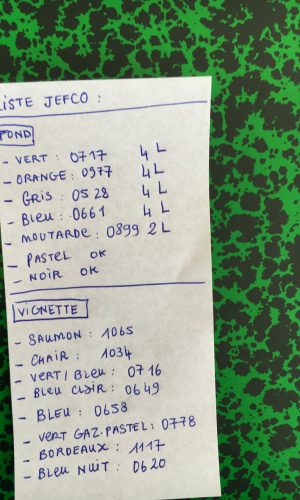 LISTE JEFCO :
FOND
- VERT : 0717 4 L
- ORANGE : 0977 4 L
- GRIS : 0528 4 L
- BLEU : 0661 4 L
- MOUTARDE : 0899 2 L
- PASTEL OK
- NOIR OK
VIGNETTE
- SAUMON : 1065
- CHAIR : 1034
- VERT / BLEU : 0716
- BLEU CLAIR : 0649
- BLEU : 0658
- VERT GAZ. PASTEL : 0778
- BORDEAUX : 1117
- BLEU NUIT : 0620